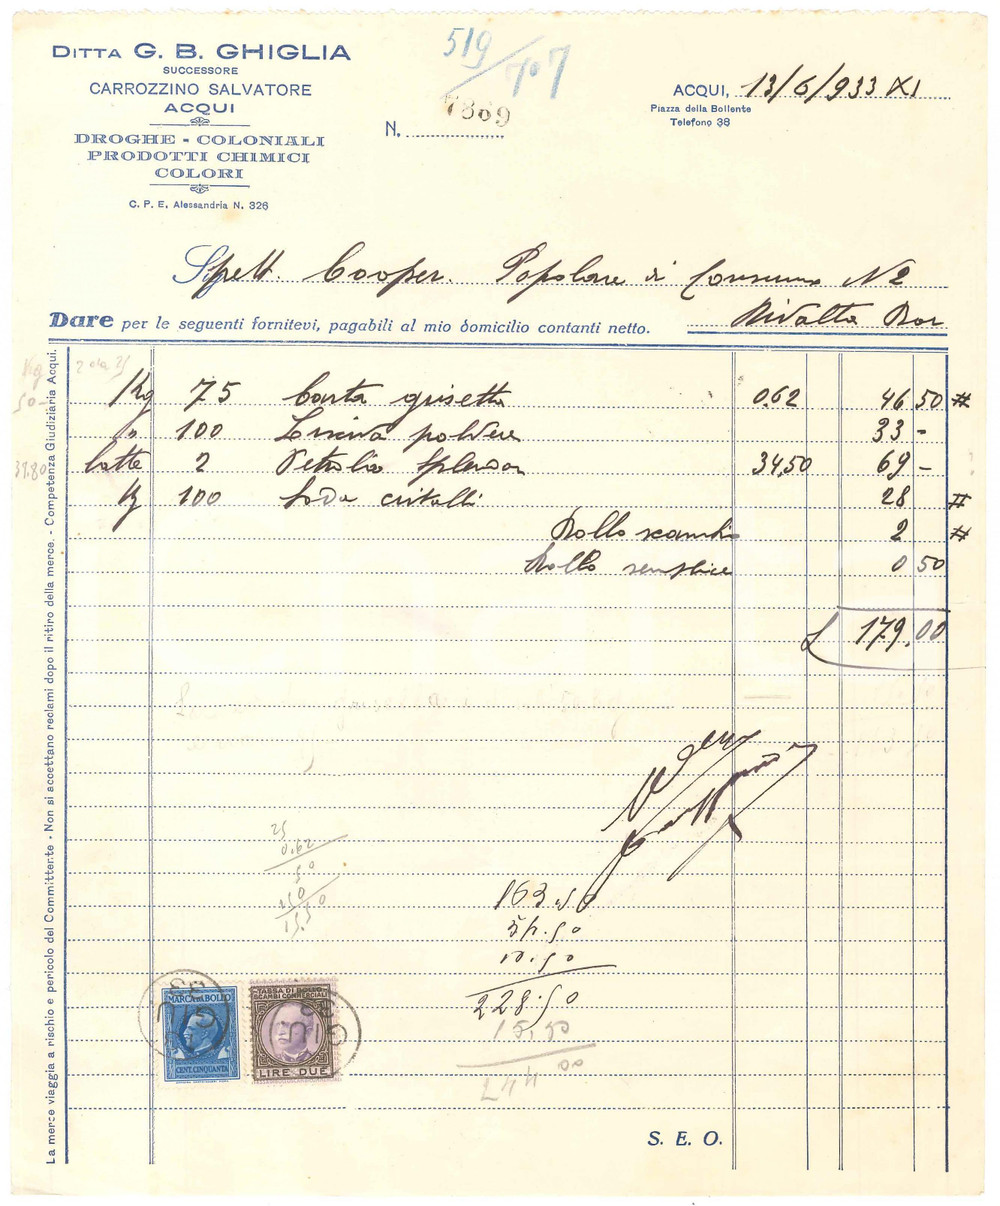 DITTA G. B. GHIGLIA
SUCCESSORE
CARROZZINO SALVATORE
ACQUI
DROGHE - COLONIALI
PRODOTTI CHIMICI
COLORI
C. P. E. Alessandria N. 326
519
707
N. 7869
ACQUI, 13/6/933 XI
Piazza della Bollente
Telefono 38
Spett. Cooper. Popolare di Consumo N 2
Rivalta Bor
Dare per le seguenti fornitevi, pagabili al mio domicilio contanti netto.
Kg 75 Carta grisetta 0.62 46 50 #
" 100 Lisciva polvere 33 -
latte 2 Petrolio Splendor 34,50 69 -
Kg 100 Soda cristalli 28 #
Bollo scambio 2 #
Bollo semplice 0 50
£ 179.00
25
0.62
50
150
15.50
163.50
54.50
10.50
228.50
15,50
244 00
MARCA DA BOLLO
CENT. CINQUANTA
TASSA DI BOLLO
SCAMBI COMMERCIALI
LIRE DUE
S. E. O.
La merce viaggia a rischio e pericolo del Committente - Non si accettano reclami dopo il ritiro della merce. - Competenza Giudiziaria Acqui.